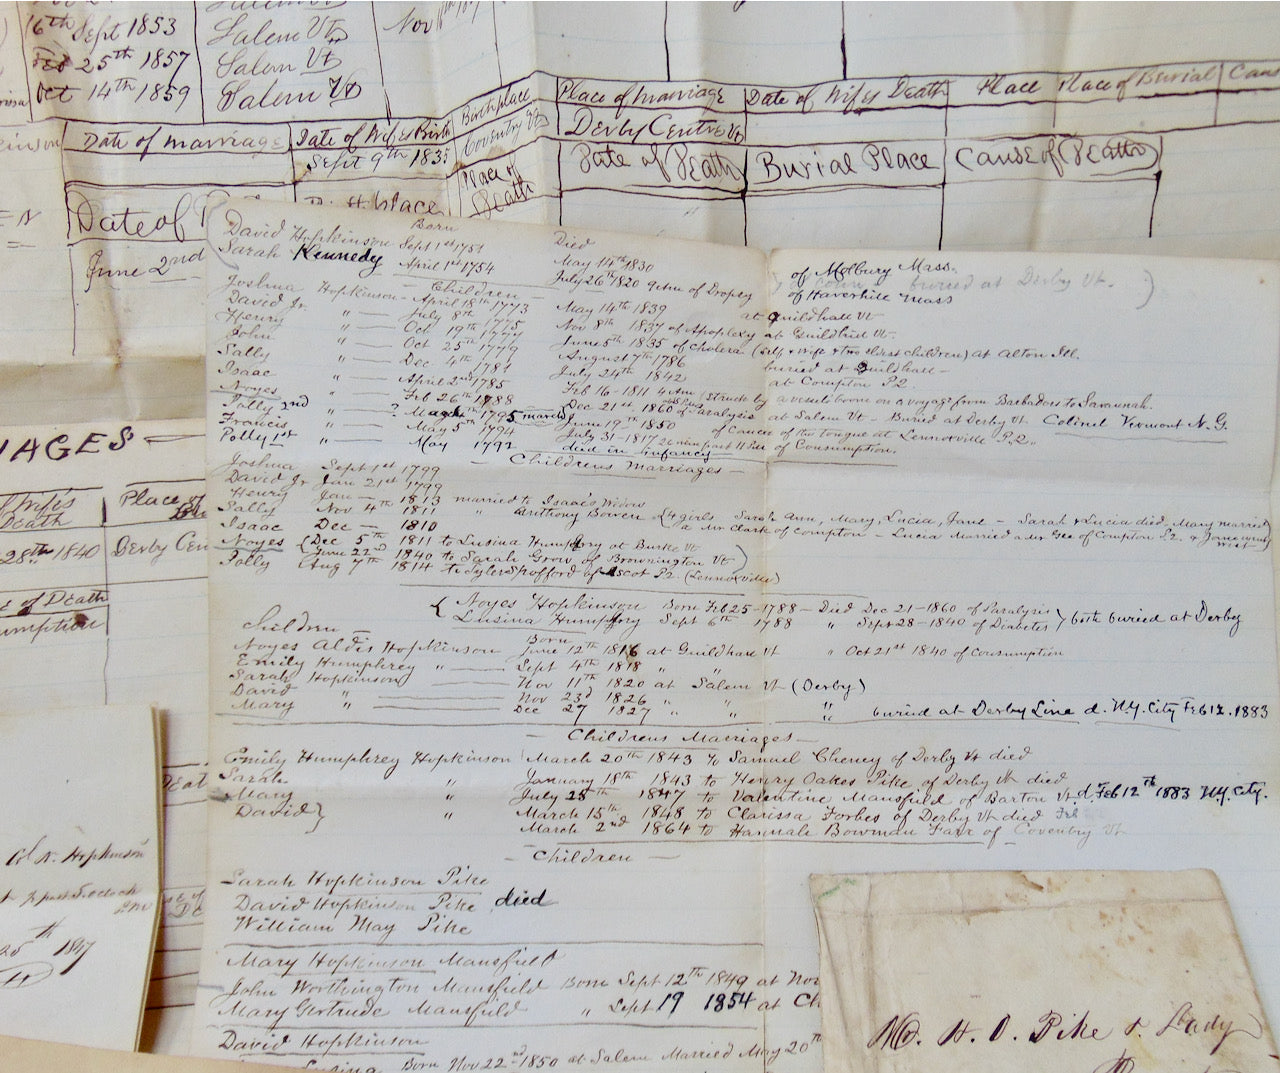 16th Sept 1853 Salem Vt Nov
Feb 25th 1857 Salem Vt
Oct 14th 1859 Salem Vt
Date of marriage Date of Wifes Birth Birthplace Place of marriage Date of Wifes Death Place Place of Burial
Sept 9th 1835 Coventry Vt Derby Centre Vt
Date of Birthplace Place of Death Date of Death Burial Place Cause of Death
June 2nd
IAGES
Wife's Death Place of
28th 1840 Derby Cen
e of Death
umption
Born Died
David Hopkinson Sept 1st 1751 May 14th 1830 of Molbury Mass.
Sarah Kennedy April 1st 1754 July 26th 1820 of Dropsy of Haverhill Mass buried at Derby Vt.
Children
Joshua Hopkinson April 18th 1773 May 14th 1839 at Guildhall Vt
David Jr. " July 8th 1775 Nov 8th 1837 of Apoplexy at Guildhall Vt.
Henry " Oct 19th 1777 June 5th 1835 of Cholera (self & wife & two eldest children) at Alton Ill.
John " Oct 25th 1779 August 7th 1786 buried at Guildhall
Sally " Dec 4th 1781 July 24th 1842 at Compton P.2.
Isaac " April 2nd 1785 Feb 16 - 1811 (struck by a vessels boom on a voyage from Barbadoes to Savannah.
Noyes " Feb 26th 1788 Dec 21st 1860 of Paralysis at Salem Vt - Buried at Derby Vt Colonel Vermont N.G.
Polly 2nd " ? March 1795 June 19th 1850 of Cancer of the tongue at Lennoxville P.2.
Francis " May 5th 1794 July 31 - 1817 of Consumption.
Polly 1st " May 1792 died in infancy
Childrens Marriages
Joshua Sept 1st 1799
David Jr Jan 21st 1799
Henry Jan 1813 married to Isaac's Widow
Sally Nov 4th 1811 " Anthony Bowen (4 girls Sarah Ann, Mary, Lucia, Jane - Sarah & Lucia died, Mary married
Isaac Dec 1810 a Mr Clark of Compton - Lucia Married a Mr Gee of Compton P.2. & Jane went West
Noyes (Dec 5th 1811 to Lusina Humphry at Burke Vt
(June 22d 1840 to Sarah Grow of Brownington Vt)
Polly Aug 7th 1814 to Tyler Spofford of Ascot P2 (Lennoxville)
Noyes Hopkinson Born Feb 25 - 1788 - Died Dec 21 - 1860 of Paralysis
Lusina Humphry Sept 6th 1788 " Sept 28 - 1840 of Diabetes } both buried at Derby
Children Born
Noyes Aldis Hopkinson June 12th 1816 at Guildhall Vt " Oct 21st 1840 of Consumption
Emily Humphrey " Sept 4th 1818 " "
Sarah Hopkinson Nov 11th 1820 at Salem Vt (Derby)
David " Nov 23d 1826 " "
Mary " Dec 27 1827 " " " buried at Derby Line d. N.Y. City Feb 12. 1883
Childrens Marriages
Emily Humphrey Hopkinson March 20th 1843 to Samuel Cheney of Derby Vt died
Sarah " January 18th 1843 to Henry Oakes Pike of Derby Vt died
Mary " July 28th 1847 to Valentine Mansfield of Barton Vt. d. Feb 12th 1883 N.Y. City.
David } " March 15th 1848 to Clarissa Forbes of Derby Vt died Feb
March 2nd 1864 to Hannah Bowman Farr of Coventry Vt
Children
Sarah Hopkinson Pike
David Hopkinson Pike died
William May Pike
Mary Hopkinson Mansfield
John Worthington Mansfield Born Sept 12th 1849 at Nor
Mary Gertrude Mansfield " Sept 19 1854 at Ch
David Hopkinson
Lusina Born Nov 22nd 1850 at Salem Married May 20th
Col N. Hopkinson
25th 1847
Mr. H. O. Pike & Lady